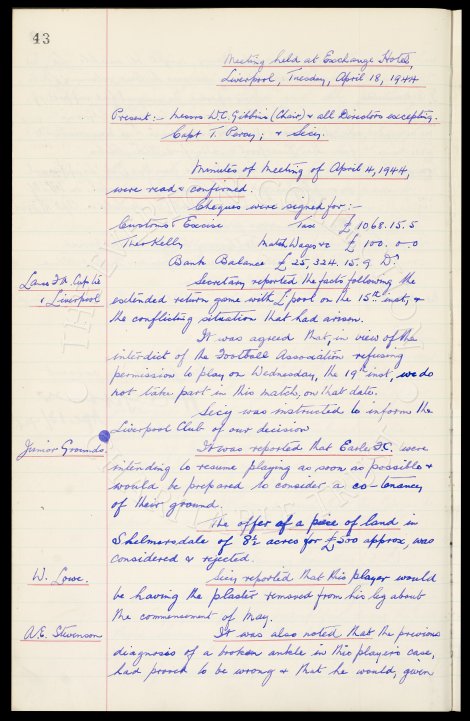 43
Meeting held at Exchange Hotel,
Liverpool, Tuesday, April 18, 1944
Present:- Messrs W.C. Gibbins (Chair) & all Directors excepting.
Capt T. Percy; & Secy.
Minutes of Meeting of April 4, 1944,
were read & confirmed.
Cheques were signed for:-
Customs & Excise Tax £1068.15.5
Theo Kelly Match Wages &c £100.0.0
Bank Balance £25,324.15.9 Dr
Lancs F.A. Cup tie
& Liverpool
Secretary reported the facts following the
extended return game with L'pool on the 15th inst, &
the conflicting situation that had arisen.
It was agreed that, in view of the
interdict of the Football Association refusing
permission to play on Wednesday, the 19th inst, we do
not take part in this match, on that date.
Secy was instructed to inform the
Liverpool Club of our decision
Junior Grounds.
It was reported that Earle F.C. were
intending to resume playing as soon as possible &
would be prepared to consider a co-tenancy
of their ground.
The offer of a piece of land in
Skelmersdale of 8½ acres for £500 approx, was
considered & rejected.
W. Lowe.
Secy reported that this player would
be having the plaster removed from his leg about
the commencement of May.
A.E. Stevenson
It was also noted that the previous
diagnosis of a broken ankle in this player's case,
had proved to be wrong & that he would, given